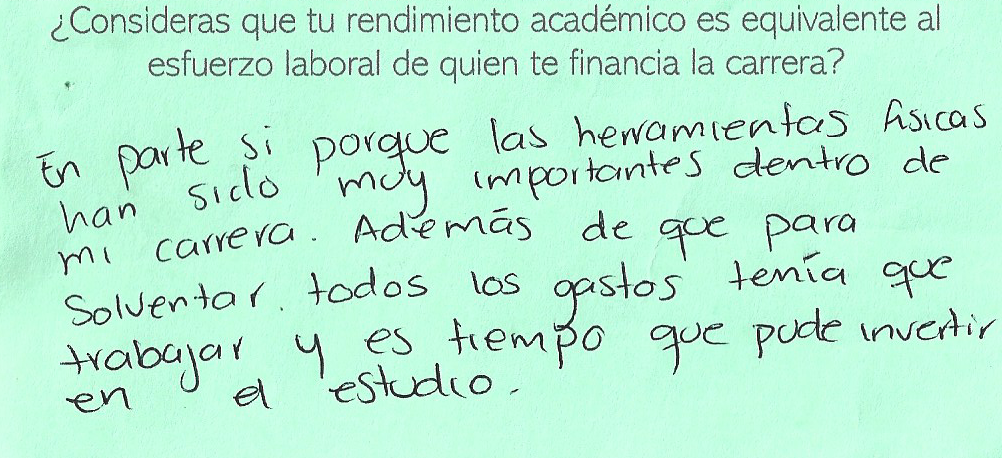 ¿Consideras que tu rendimiento académico es equivalente al
esfuerzo laboral de quien te financia la carrera?
En parte si porque las herramientas físicas
han sido muy importantes dentro de
mi carrera. Además de que para
Solventar todos los gastos tenía que
trabajar y es tiempo que pude invertir
en el estudio.